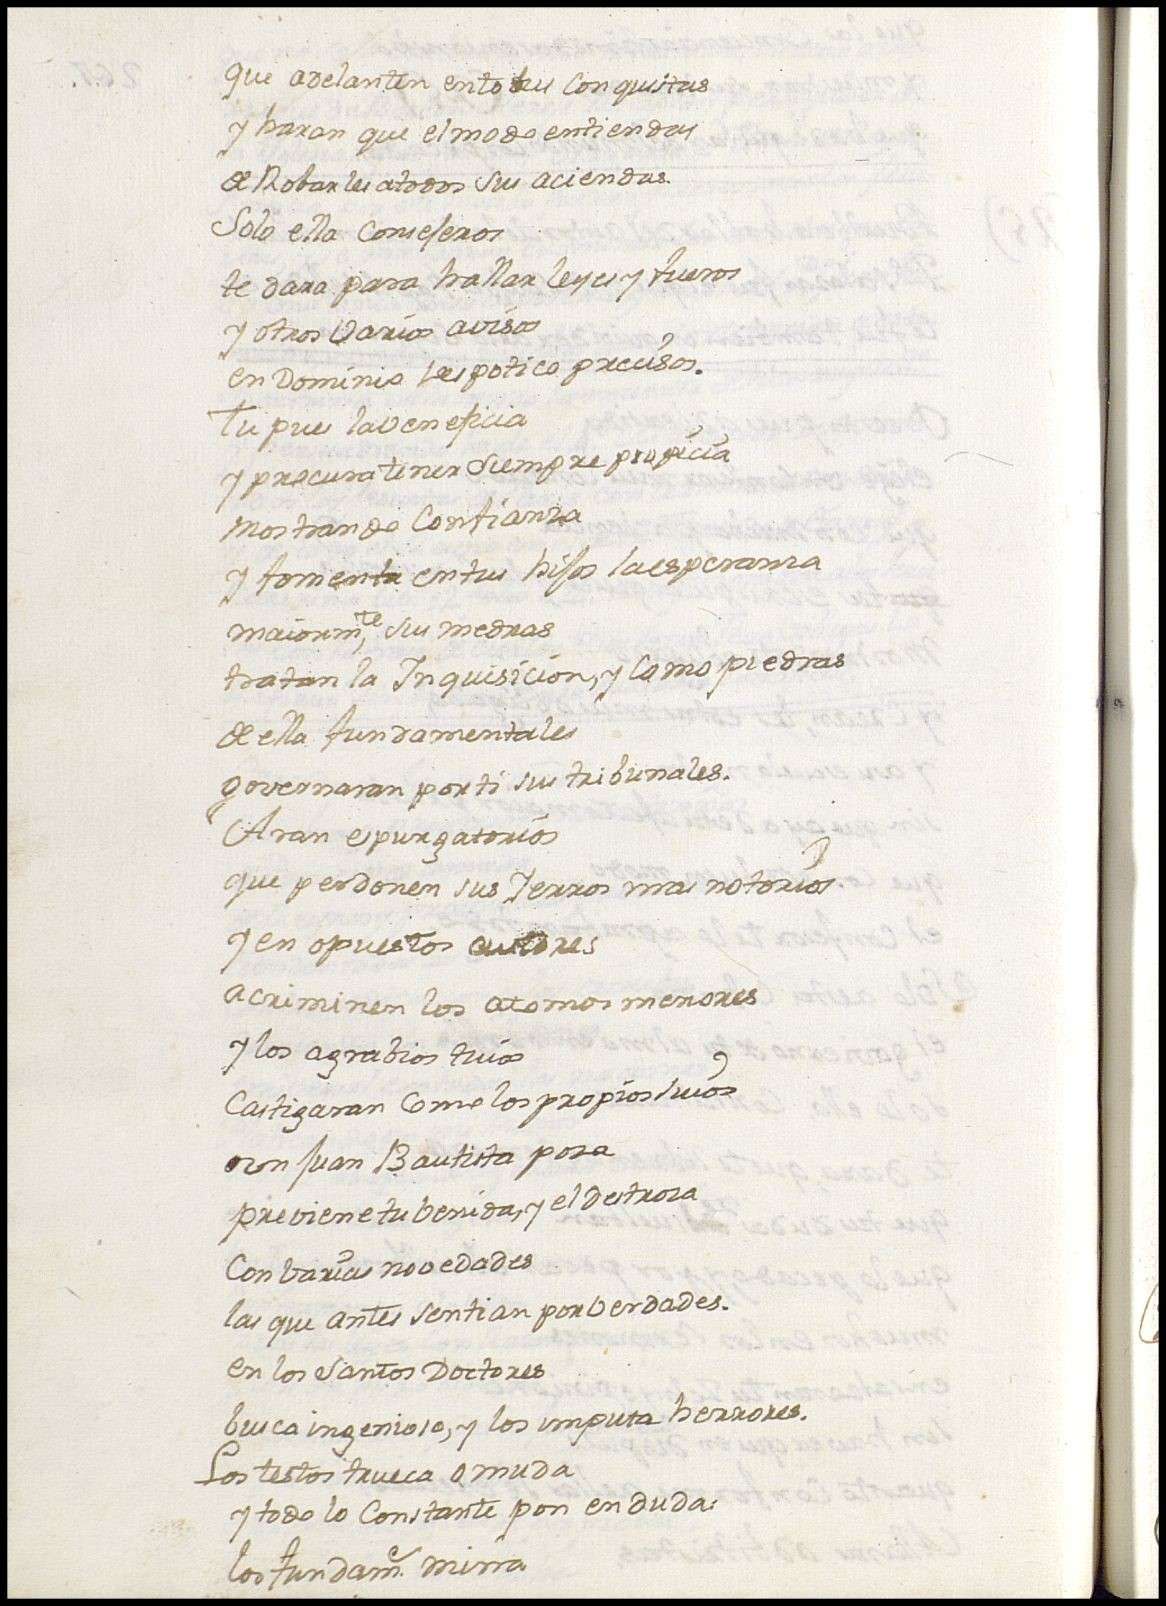 que adelanten ento tus Conquistas
y haran que el modo entiendas
de Robarles atodos sus aciendas.
Solo ella Consejeros
te dara para hallar leyes y fueros
y otros Varios avisos
en Dominio Despotico precisos.
Tu pues la beneficia
y procura tener siempre propicia
mostrando Confianza
y fomenta entus hijos la esperanza
maiormte, sus medras
tratan la Inquisicion, y Como piedras
de ella fundamentales
governaran por ti sus tribunales.
Aran espurgatorios
que perdonen sus Jerros mas notorios
y en opuestos autores
acriminen los atomos menores
y los agrabios tuios
Castigaran Como los propios suios
Juan Bautista poza
previene tu benida, y el destroza
Con barias novedades
las que antes sentian por verdades.
en los Santos Doctores
busca ingenioso, y los imputa herrores.
Los testos trueca o muda
y todo lo Constante pon en duda
los fundamtes. mina